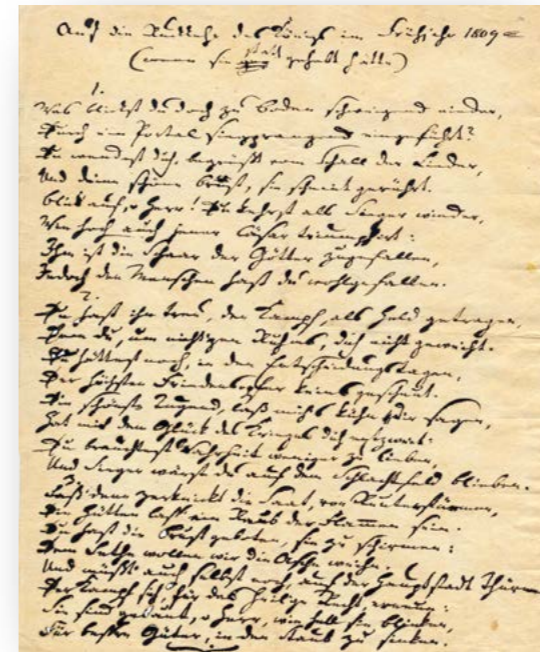 Auf die Rückkehr des Königs im Frühjahr 1809
(wenn sie statt gehabt hätte)
1.
Was blickst du doch zu Boden schweigend nieder,
Durch ein Portal siegprangend eingeführt?
Du wendest dich, begrüßt vom Schall der Lieder,
Und deine schöne Brust, sie scheint gerührt.
Blick auf, o Herr! Du kehrst als Sieger wieder,
Wie hoch auch jener Cäsar triumphirt:
Ihm ist die Schaar der Götter zugefallen,
Jedoch den Menschen hast du wohlgefallen.
2.
Du hast ihn treu, den Kampf, als Held getragen,
Dem du, um nichtgen Ruhm, dich nicht geweiht.
Du hättest noch, in den Entscheidungstagen,
Der höchsten Friedensopfer keins gescheut.
Die schönste Tugend, laß michs kühn dir sagen,
Hat mit dem Glück des Krieges dich entzweit:
Du brauchtest Wahrheit weniger zu lieben,
Und Sieger wärst du auf dem Schlachtfeld blieben.
3.
Laß denn zerknickt die Saat, von Waffenstürmen,
Die Hütten laß ein Raub der Flammen sein.
Du hast die Brust geboten, sie zu schirmen:
Dem Lethe wollen wir die Asche weihn.
Und müßt auch selbst noch, auf der Hauptstadt Thürmen,
Der Kampf sich, für das heilige Recht, erneun:
Sie sind gebaut, o Herr, wie hell sie blinken,
Für beßre Güter, in den Staub zu sinken.